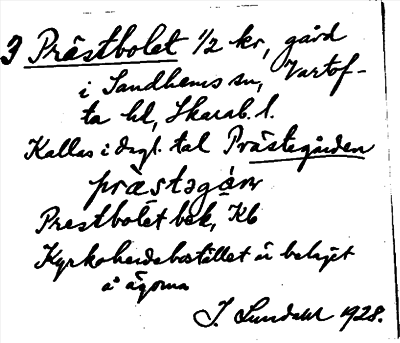 3 Prästbolet 1/2 kr, gård
i Sandhems sn, Vartof-
ta hd, Skarab. l.
Kallas i dagl. tal Prästegården
præstəgán
Prestbolet bek, Kb
Kyrkoherdebostället är beläget
å ägorna
I. Lundahl 1928.